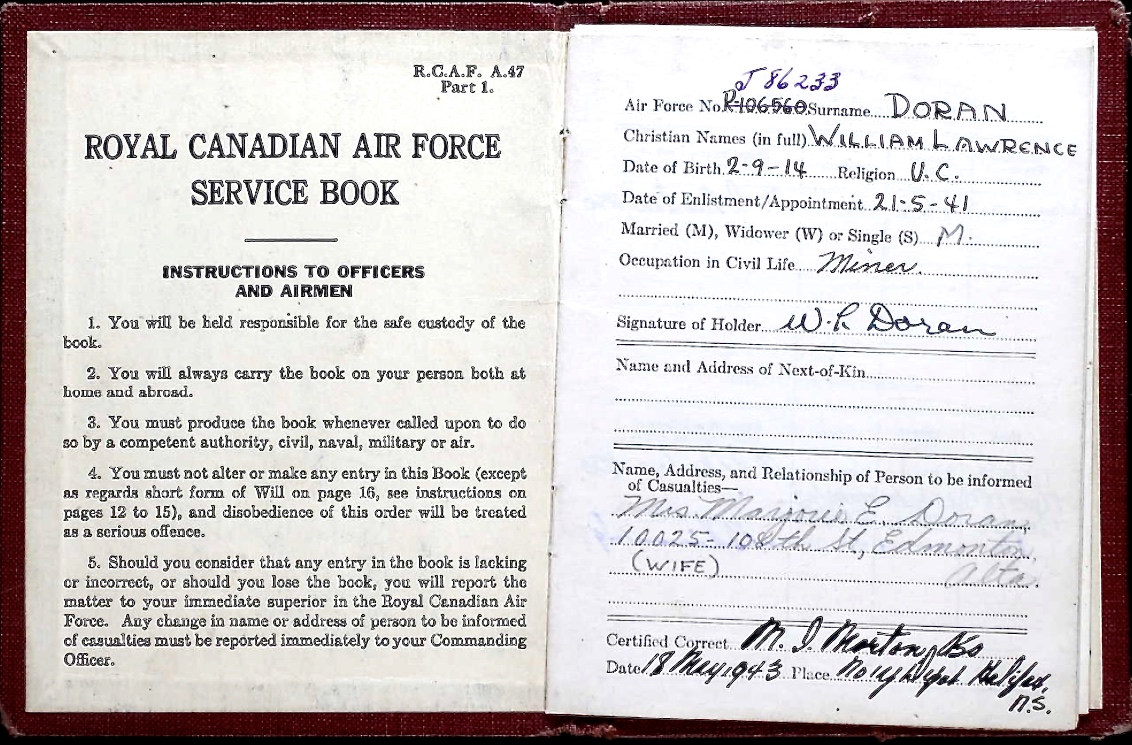 R.C.A.F. A.47
Part 1.
ROYAL CANADIAN AIR FORCE
SERVICE BOOK
INSTRUCTIONS TO OFFICERS
AND AIRMEN
1. You will be held responsible for the safe custody of the
book.
2. You will always carry the book on your person both at
home and abroad.
3. You must produce the book whenever called upon to do
so by a competent authority, civil, naval, military or air.
4. You must not alter or make any entry in this Book (except
as regards short form of Will on page 16, see instructions on
pages 12 to 15), and disobedience of this order will be treated
as a serious offence.
5. Should you consider that any entry in the book is lacking
or incorrect, or should you lose the book, you will report the
matter to your immediate superior in the Royal Canadian Air
Force. Any change in name or address of person to be informed
of casualties must be reported immediately to your Commanding
Officer.
J 86233
Air Force No. R-106560 Surname DORAN
Christian Names (in full) WILLIAM LAWRENCE
Date of Birth 2-9-14 Religion U.C.
Date of Enlistment/Appointment 21-5-41
Married (M), Widower (W) or Single (S) M.
Occupation in Civil Life Miner.
Signature of Holder W. L. Doran
Name and Address of Next-of-Kin
Name, Address, and Relationship of Person to be informed
of Casualties—
Mrs. Marjorie E. Doran,
10025-108th St, Edmonton
Alta.
(WIFE)
Certified Correct M. I. Morton
Date 18 May 1943 Place Halifax,
N.S.